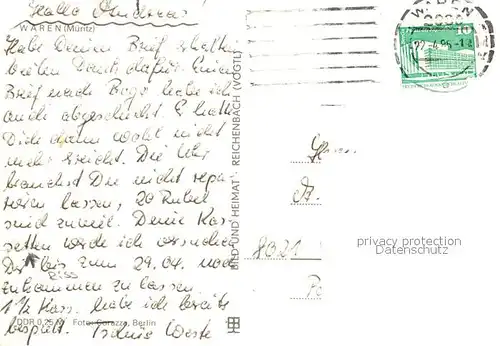 Hallo Andreas!
WAREN (Müritz)
Habe Deinen Brief erhalten
vielen Dank dafür. Einen
Brief nach Riga habe ich
auch abgeschickt. Er hatte
Dich dann wohl nicht
mehr erreicht. Die Uhr
brauchst Du nicht repa-
rieren lassen, 20 Rubel
sind zuviel. Deine Kas-
setten werde ich versuchen
Dir bis zum 29.04. noch
zukommen zu lassen.
1 1/2 Kass. habe ich bereits
bespielt. Tschüs
DDR 0,25 M Foto: Corazza, Berlin
BILD UND HEIMAT REICHENBACH (VOGTL)
WAREN
10
Herrn
8021
privacy protection
Datenschutz